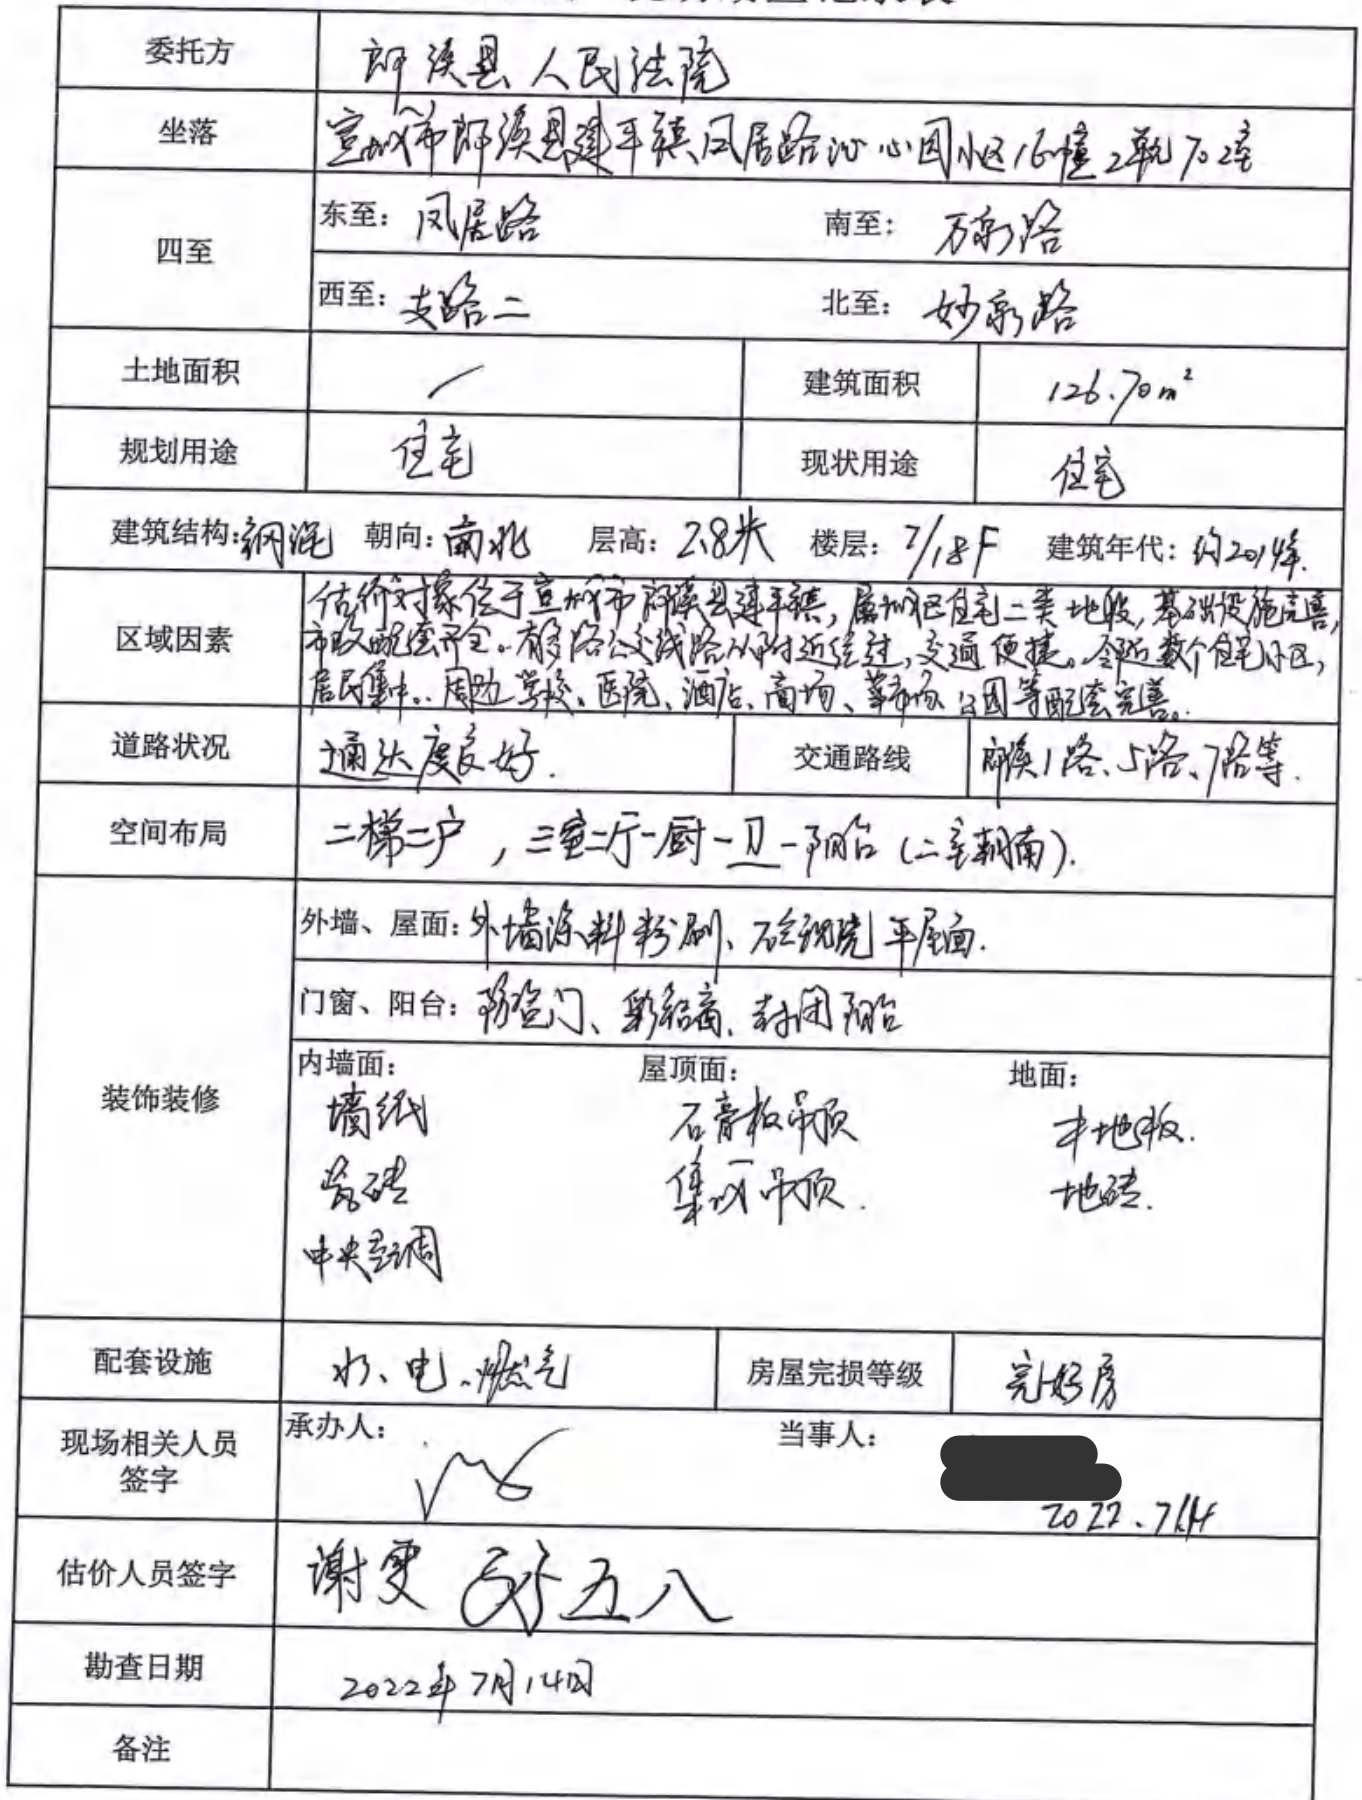 委托方 郎溪县人民法院
坐落 宣城市郎溪县建平镇凤居路沁心园小区16幢2单元702室
四至 东至：凤居路 南至：万泉路
西至：支路二 北至：妙泉路
土地面积 / 建筑面积 126.70m²
规划用途 住宅 现状用途 住宅
建筑结构：钢混 朝向：南北 层高：2.8米 楼层：7/18F 建筑年代：约2014年.
区域因素 估价对象位于宣城市郎溪县建平镇，属城区住宅二类地段，基础设施完善，
市政配套齐全。有多路公交线路从附近经过，交通便捷。邻近数个住宅小区，
居民集中。周边学校、医院、酒店、商场、菜市场、公园等配套完善。
道路状况 通达度良好. 交通路线 郎溪1路、5路、7路等.
空间布局 二梯二户，三室二厅一厨一卫一阳台（二室朝南）.
装饰装修
外墙、屋面：外墙涂料粉刷、砼现浇平屋面.
门窗、阳台：防盗门、彩铝窗、封闭阳台
内墙面： 屋顶面： 地面：
墙纸 石膏板吊顶 木地板.
瓷砖 集成吊顶. 地砖.
中央空调
配套设施 水、电、燃气 房屋完损等级 完好房
现场相关人员 承办人： 当事人：
签字 2022.7.14
估价人员签字 谢雯 五八
勘查日期 2022年7月14日
备注